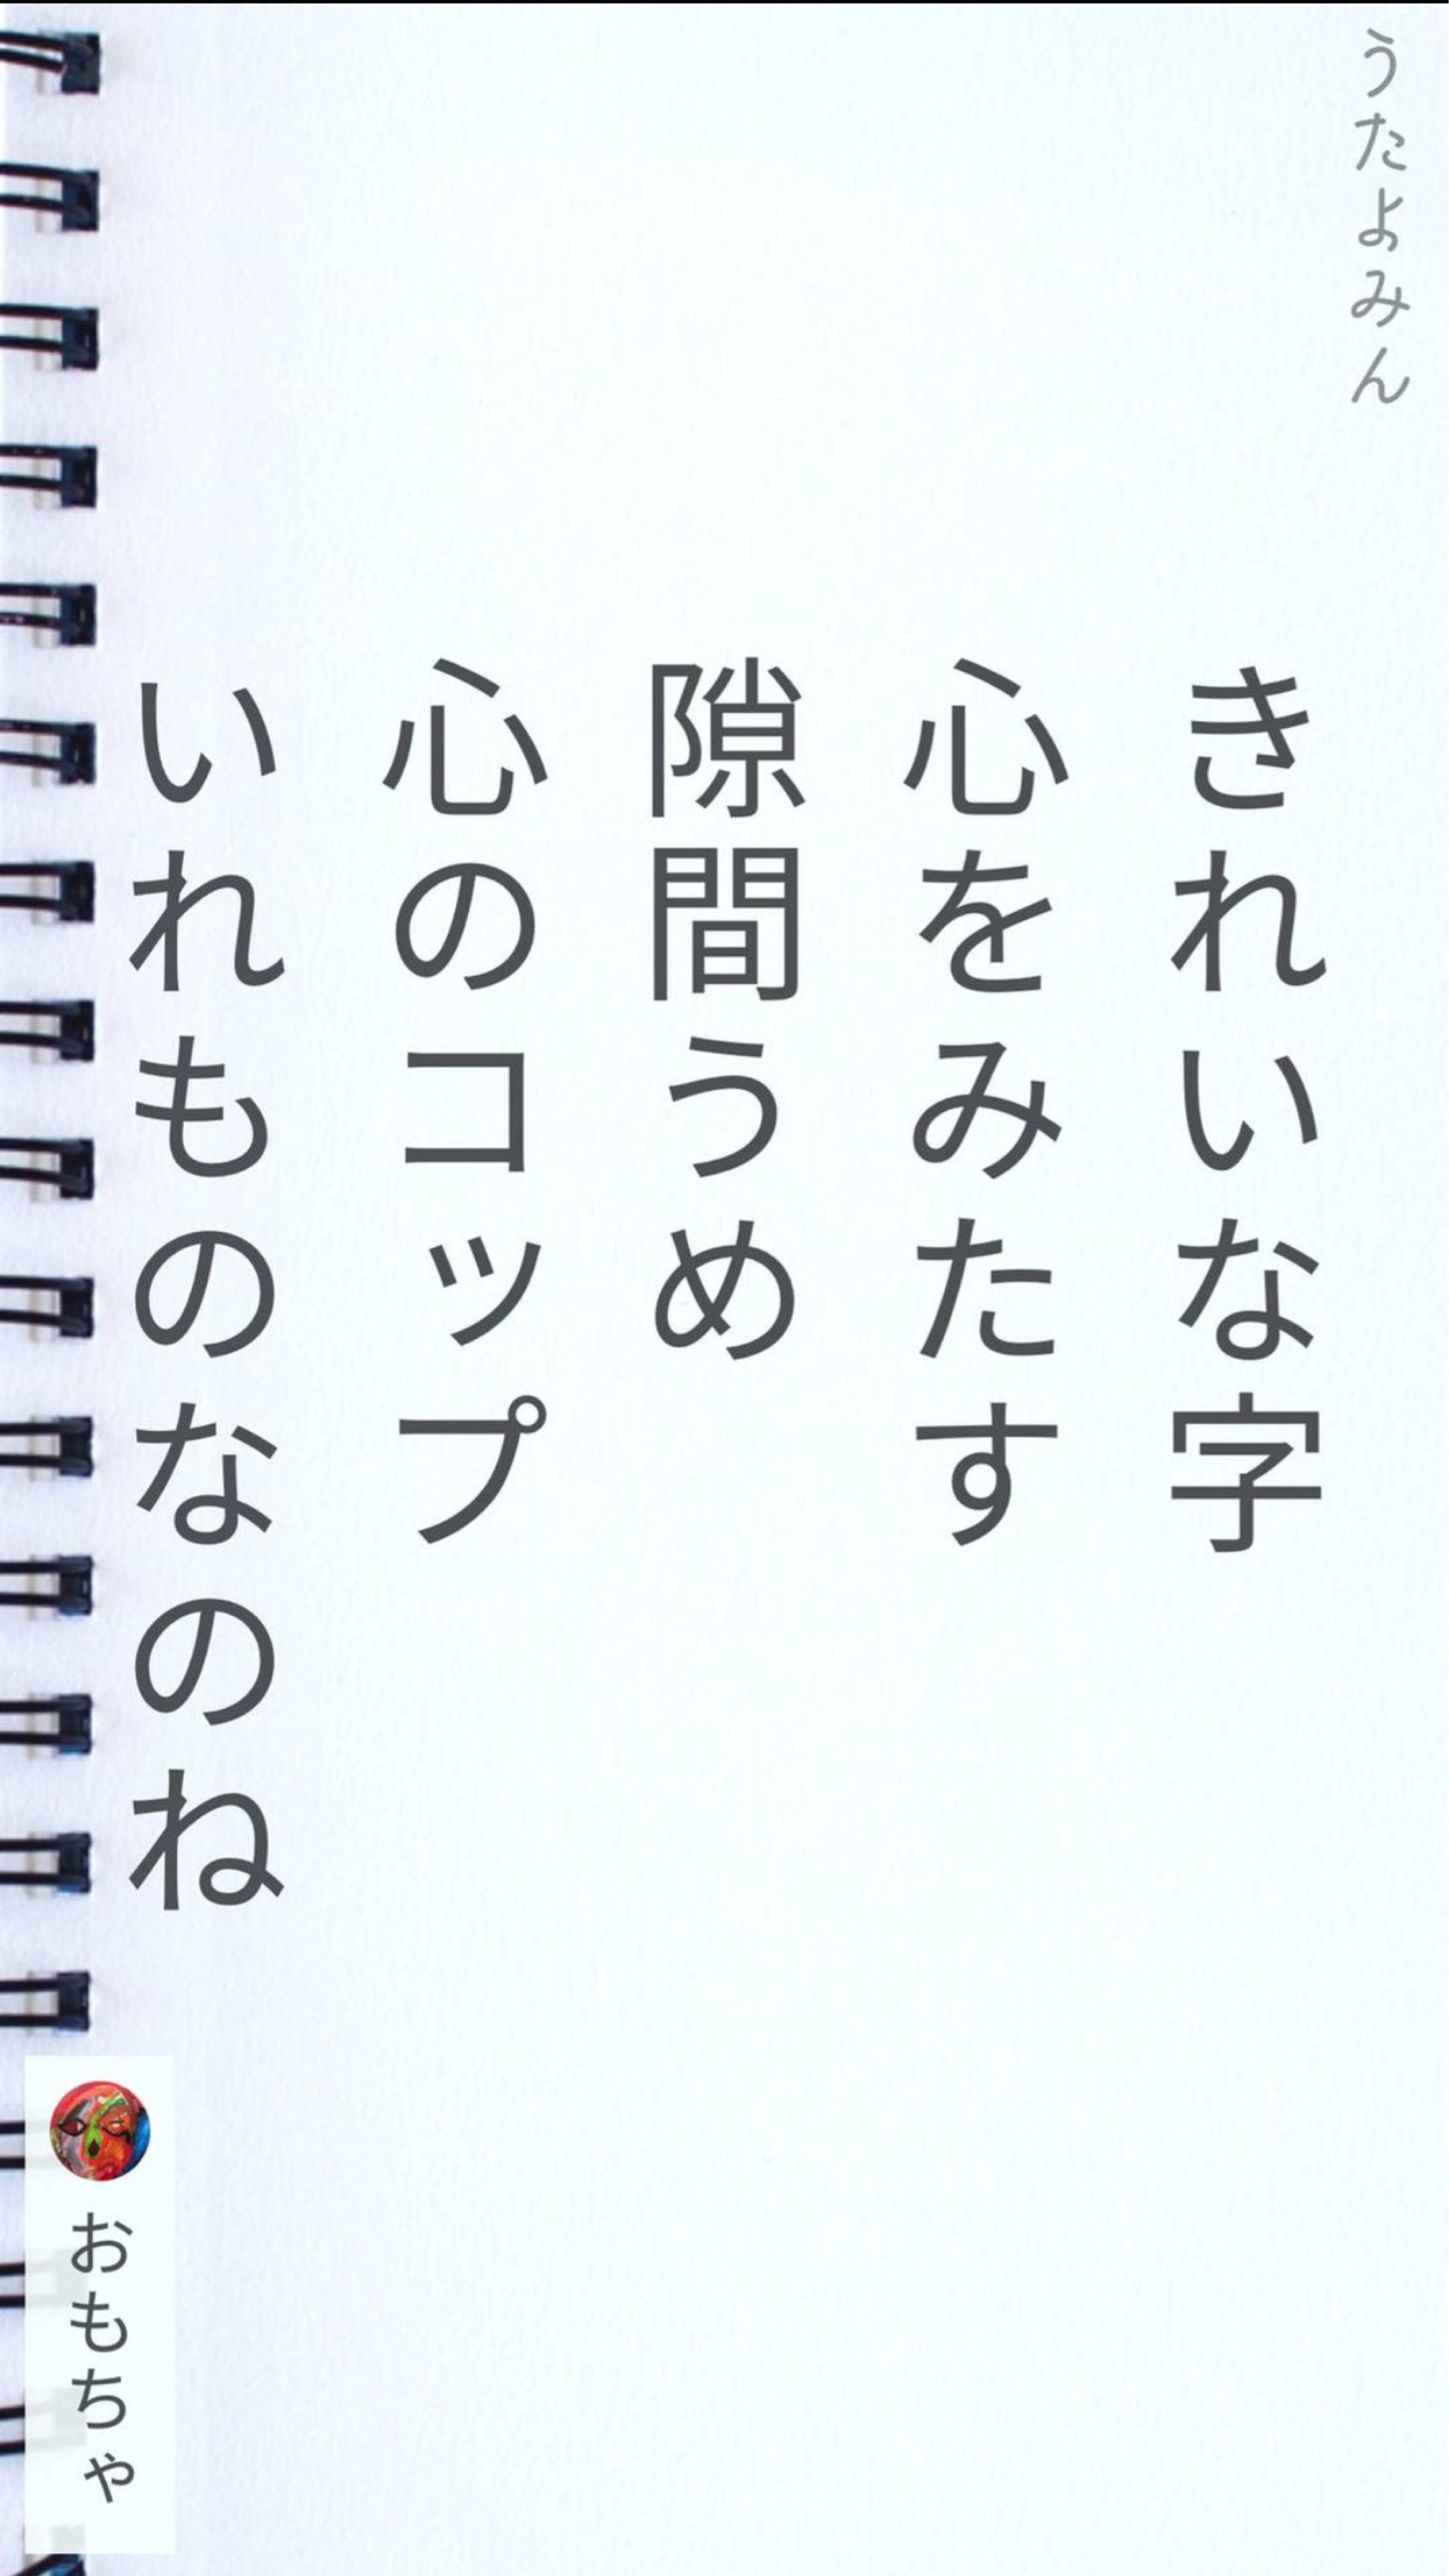 うたよみん
きれいな字
心をみたす
隙間うめ
心のコップ
いれものなのね
おもちゃ